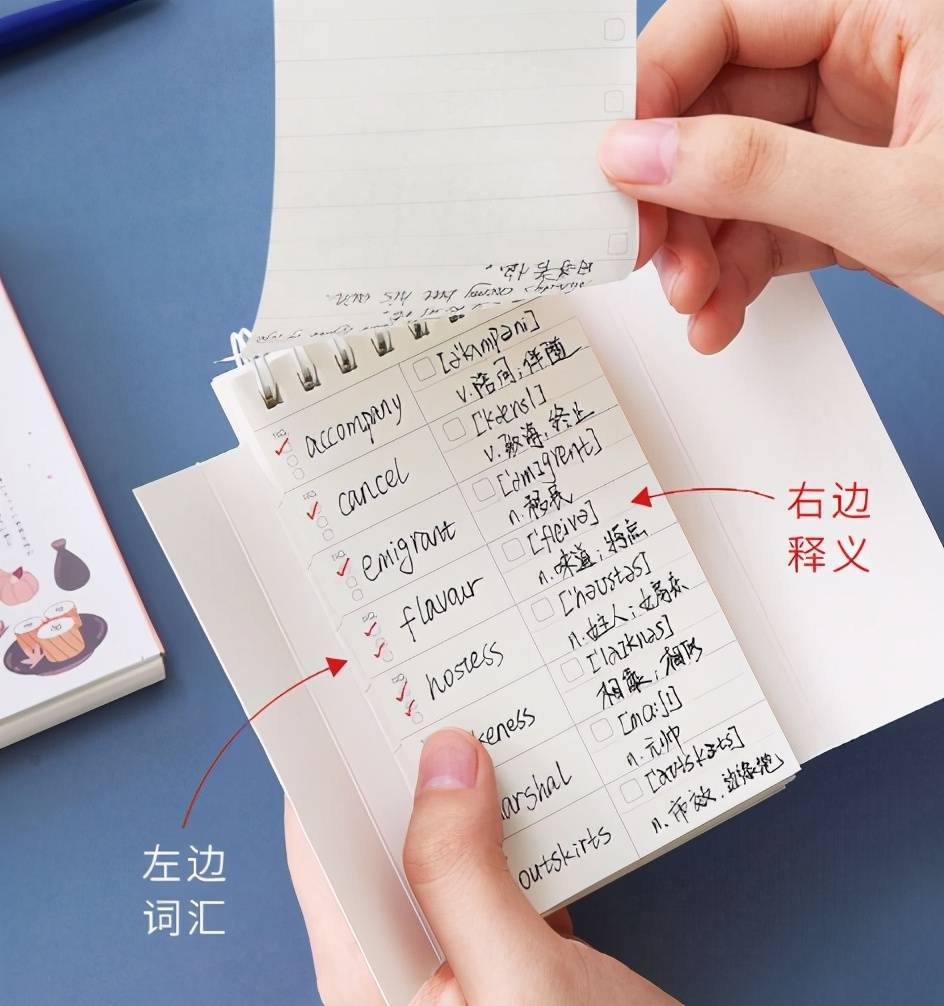 accompany
[ə'kʌmpəni]
v.陪同;伴随
cancel
[kænsl]
v.取消,终止
emigrant
['emɪgrənt]
n.移民
flavour
['fleivə]
n.味道;特点
hostess
['həustəs]
n.女主人;女房东
keness
['laɪknəs]
相像;相似
arshal
[mɑ:ʃl]
n.元帅
outskirts
[autskɜ:ts]
n.市郊,边缘地
右边
释义
左边
词汇